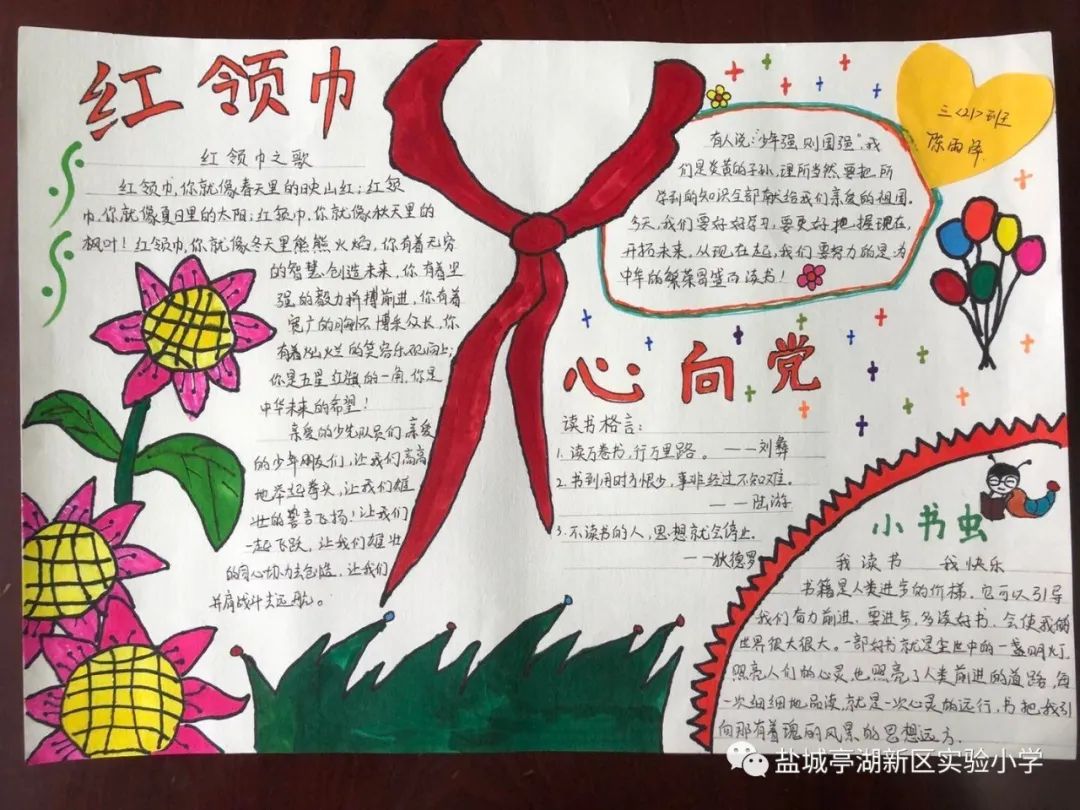 红领巾
红领巾之歌
红领巾,你就像春天里的映山红;红领
巾,你就像夏日里的太阳;红领巾,你就像秋天里的
枫叶!红领巾,你就像冬天里熊熊火焰,你有着无穷
的智慧创造未来,你有着坚
强的毅力拼搏前进,你有着
宽广的胸怀博采众长,你
有着灿烂的笑容乐观向上;
你是五星红旗的一角,你是
中华未来的希望!
亲爱的少先队员们,亲爱
的少年朋友们,让我们高高
地举起拳头,让我们雄
壮的誓言飞扬!让我们
一起飞跃,让我们雄壮
的同心协力去创造,让我们
并肩战斗去远航。
有人说:“少年强则国强”,我
们是炎黄的子孙,理所当然要把所
学到的知识全部献给我们亲爱的祖国。
今天,我们要好好学习,要更好把握现在,
开拓未来,从现在起,我们要努力的是:为
中华的繁荣昌盛而读书!
三<21>班
陈雨泽
心向党
读书格言:
1.读万卷书,行万里路。——刘彝
2.书到用时方恨少,事非经过不知难。
——陆游
3.不读书的人,思想就会停止。
——狄德罗
小书虫
我读书 我快乐
书籍是人类进步的阶梯,它可以引导
我们奋力前进,要进步,多读好书,会使我的
世界很大很大。一部好书就是尘世中的一盏明灯,
照亮人们的心灵,也照亮了人类前进的道路,每
一次细细地品读,就是一次心灵的远行,书把我引
向那有着瑰丽风景的思想远方.
盐城亭湖新区实验小学